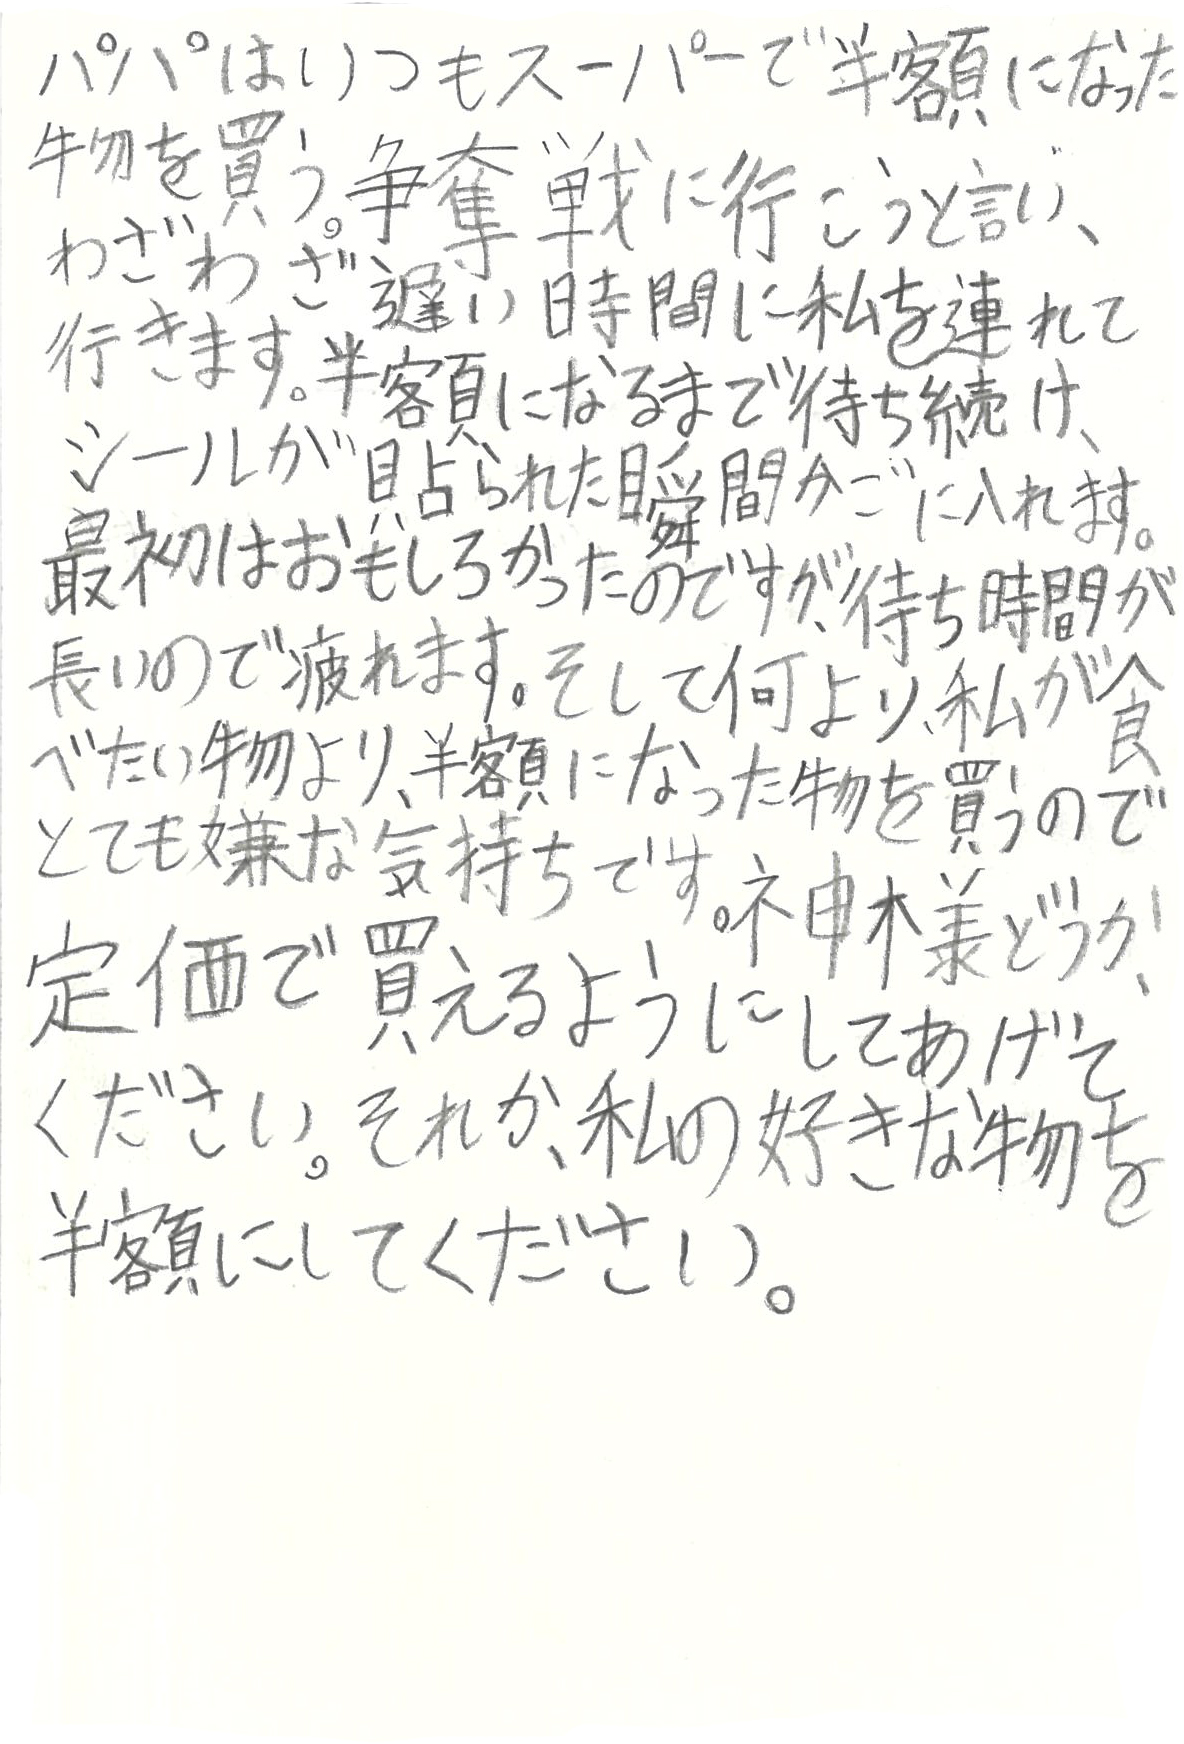 パパはいつもスーパーで半額になった
物を買う。争奪戦に行こうと言い、
わざわざ遅い時間に私を連れて
行きます。半額になるまで待ち続け、
シールが貼られた瞬間かごに入れます。
最初はおもしろかったのですが、待ち時間が
長いので疲れます。そして何より、私が食
べたい物より、半額になった物を買うので
とても嫌な気持ちです。神様どうか、
定価で買えるようにしてあげて
ください。それか、私の好きな物を
半額にしてください。